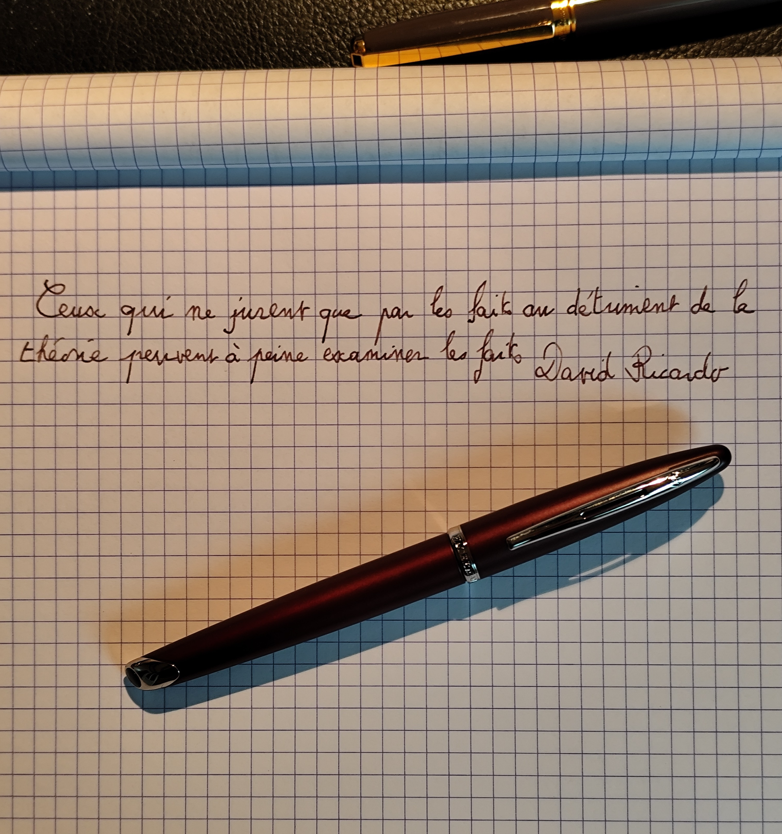 Ceux qui ne jurent que par les faits au détriment de la
théorie peuvent à peine examiner les faits David Ricardo